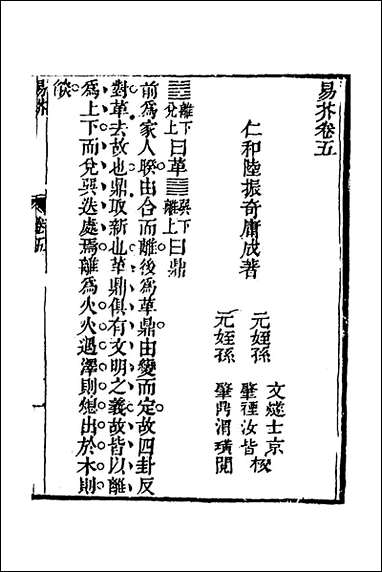 易芥卷五
仁和陸振奇庸成著
文燧士京
元姪孫 肇種汝皆 校
元姪孫 肇鼎渭璜閱
䷰離下兌上曰革䷱巽下離上曰鼎
前爲家人睽由合而離後爲革鼎由變而定故四卦反
對革去故也鼎取新也革鼎俱有文明之義故皆以離
爲上下而兌巽迭處焉離爲火火遇澤則熄出於木則
燄
易芥 卷五 一